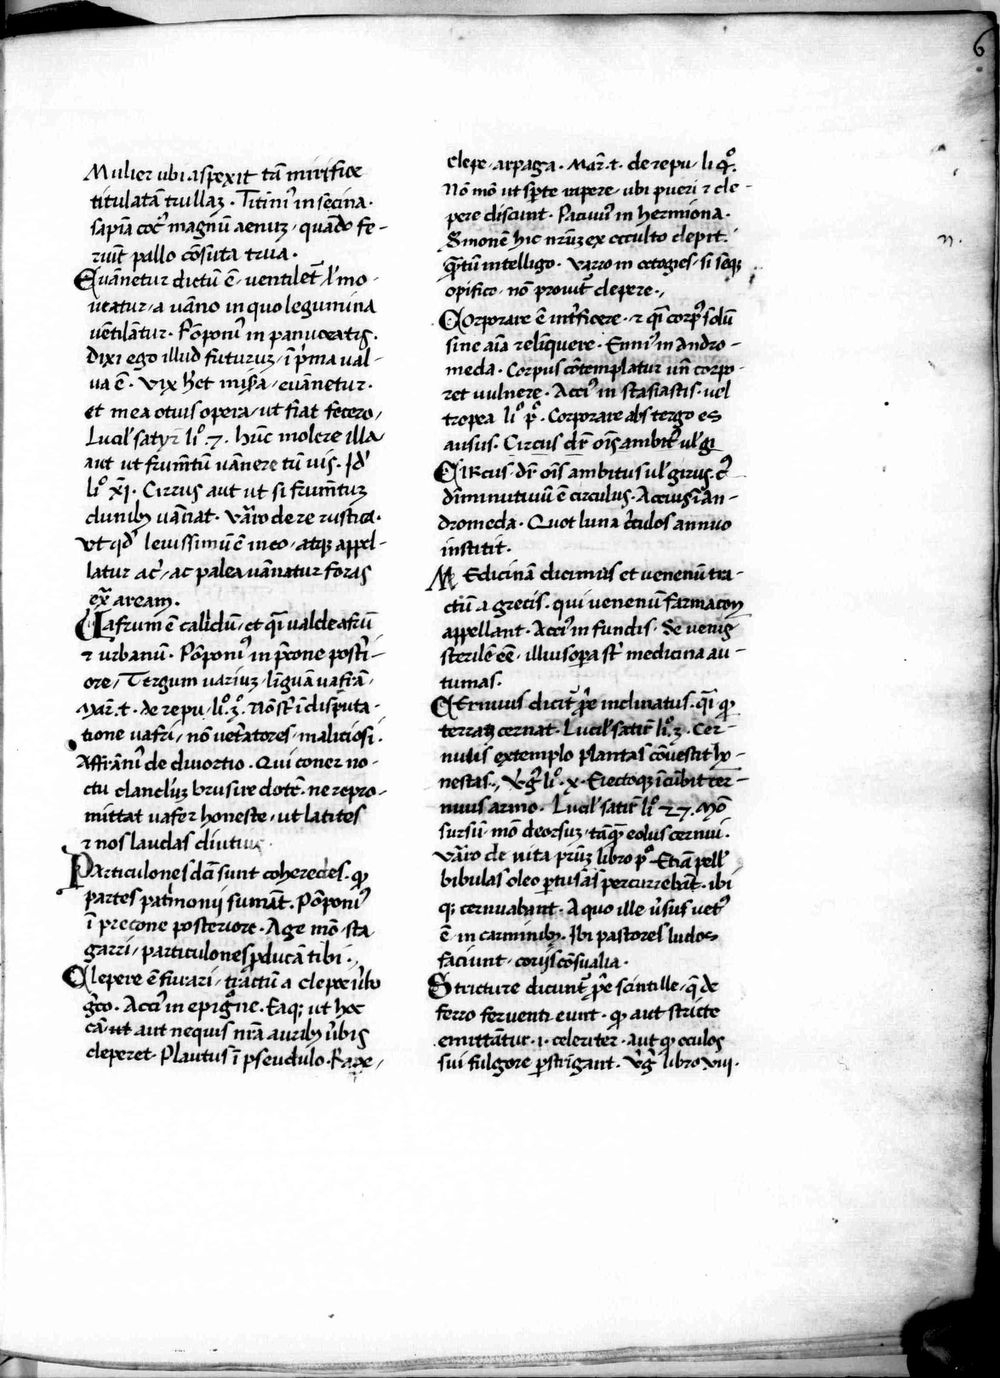 6
Mulier ubi aspexit tā mirifice
titulatā trullaʒ · Titiniꝰ in secina ·
sapiā cocꝰ magnū aenuʒ · quādo fe-
ruīt pallo cōsuta trua ·
Evānetur dictū ē · ventilet᷑ l̓ mo-
veatur · a vāno in quo legumina
vētilātur · Pōponiꝰ in panuceatis ·
dixi ego illud futuruʒ · ī pͥma val-
va ē · vix hꝫet misͤa · evānetur ·
et mea otius opera · ut fiat fecero ·
Lucil̓ satyr liͦ · 7 · hūc molere illa
aut ut frumētū vānere tū uis · Id̓
liͦ xi · Cirrus aut ut si frumētuʒ
clunibꝫ vānat · Vāro de re rustica ·
Ut qd̓ levissimū ē in eo · atqꝫ appel-
latur acꝰ · ac palea vānatur foras
ex̄ aream ·
Vafrum ē callidū · et qͣ valde afrū
⁊ urbanū · Pōponiꝰ in p̄cone posti-
ore · Tergum variuʒ · līguā vafrā ·
Mar̄ · t · de repu · liͦ · 3ͦ · Nō st̄ ī disputa-
tione vafri · nō vet̄atores · malitiosi ·
Affrāniꝰ de divortio · Qui coner no-
ctu clanclūʒ brusire dotē · ne repro-
mittat vafer honeste · ut latites
⁊ nos laudas diutius
Particulones dc̄i sunt coheredes · ꝙ
partes patͥmonij sumāt · Pōponiꝰ
ī precone posteriore · Age mō · sta
garri · particulones ꝓducā tibi ·
Clepere ē furari · tractū a clepoe v̓bo
gͤco · Acciꝰ in epigͦne · Eaqꝫ ut hoc
cā ut aut nequis nr̄ā auribꝫ v̓bis
cleperet · Plautus ī pseudulo · Rape ·
clepe · arpaga · Mar̄ · t · de repu · li qͦ ·
Nō mō ut spͤte rapere · ubi pueri ⁊ cle-
pere discunt · Pacuviꝰ in hermiona ·
Sʼmonē hic nr̄ūʒ ex occulto clepit ·
n ·
qͣtū intelligo · Varro in octogies · si seqꝫ
opifico · nō provīt clepere ·
Corporare ē int̓ficere · ⁊ qͣi corpꝰ solū
sine aīa relīquere · Enniꝰ in andro-
meda · Corpus cōtemplatur un̄ corpo-
ret vulnere · Acciꝰ in stasiastis · vel
tropea liͦ pͥ · Corporare abs tergo es
ausus · Circus dr̄ oīs ambitꝰ ul̓ gi
Circus · dr̄ oīs ambitus ul̓ girus · cꝰ
dīminutivū ē circulus · Accius ī an-
dromeda · Quot luna cͥculos annuo
institit ·
Medicinā dicimus et venenū tra-
ctū a grecis · qui venenū farmacon
appellant · Acciꝰ in fundis · De venis
sterilē eē · illius oꝑa st̄ medicina au-
tumas ·
Cernuus dicit᷑ ꝓpͤ inclinatus · qͣi ꝙ
terraʒ cernat · Lucil̓ satir̄ liͦ · 3 · Cer-
nulis extemplo plantas cōvestit ho-
nestas · V̓g̓ liͦ · x · Eiectoqꝫ īcūbit cer-
nuus armo · Lucil̓ satir̄ liͦ 27 · Mō
sursū · mō deorsuʒ · tāqͣ eolus cernui ·
Vāro de vita pr̄ūʒ libro pͦ Etiā pell̓
bibulas oleo ꝑfusas percurrebāt · ibi
qꝫ cernuabant · A quo ille v̓sus vetꝰ
ē in carminibꝫ · Ibi pastores ludos
faciunt · corijs cōsualia ·
Stricture dicunt᷑ ꝓpͤ scintille · qͤ de
ferro ferventi eunt · ꝙ aut stricte
emittātur · i · celeriter · aut ꝙ oculos
sui fulgore ꝑstrigant · V̓g̓ libro viii ·